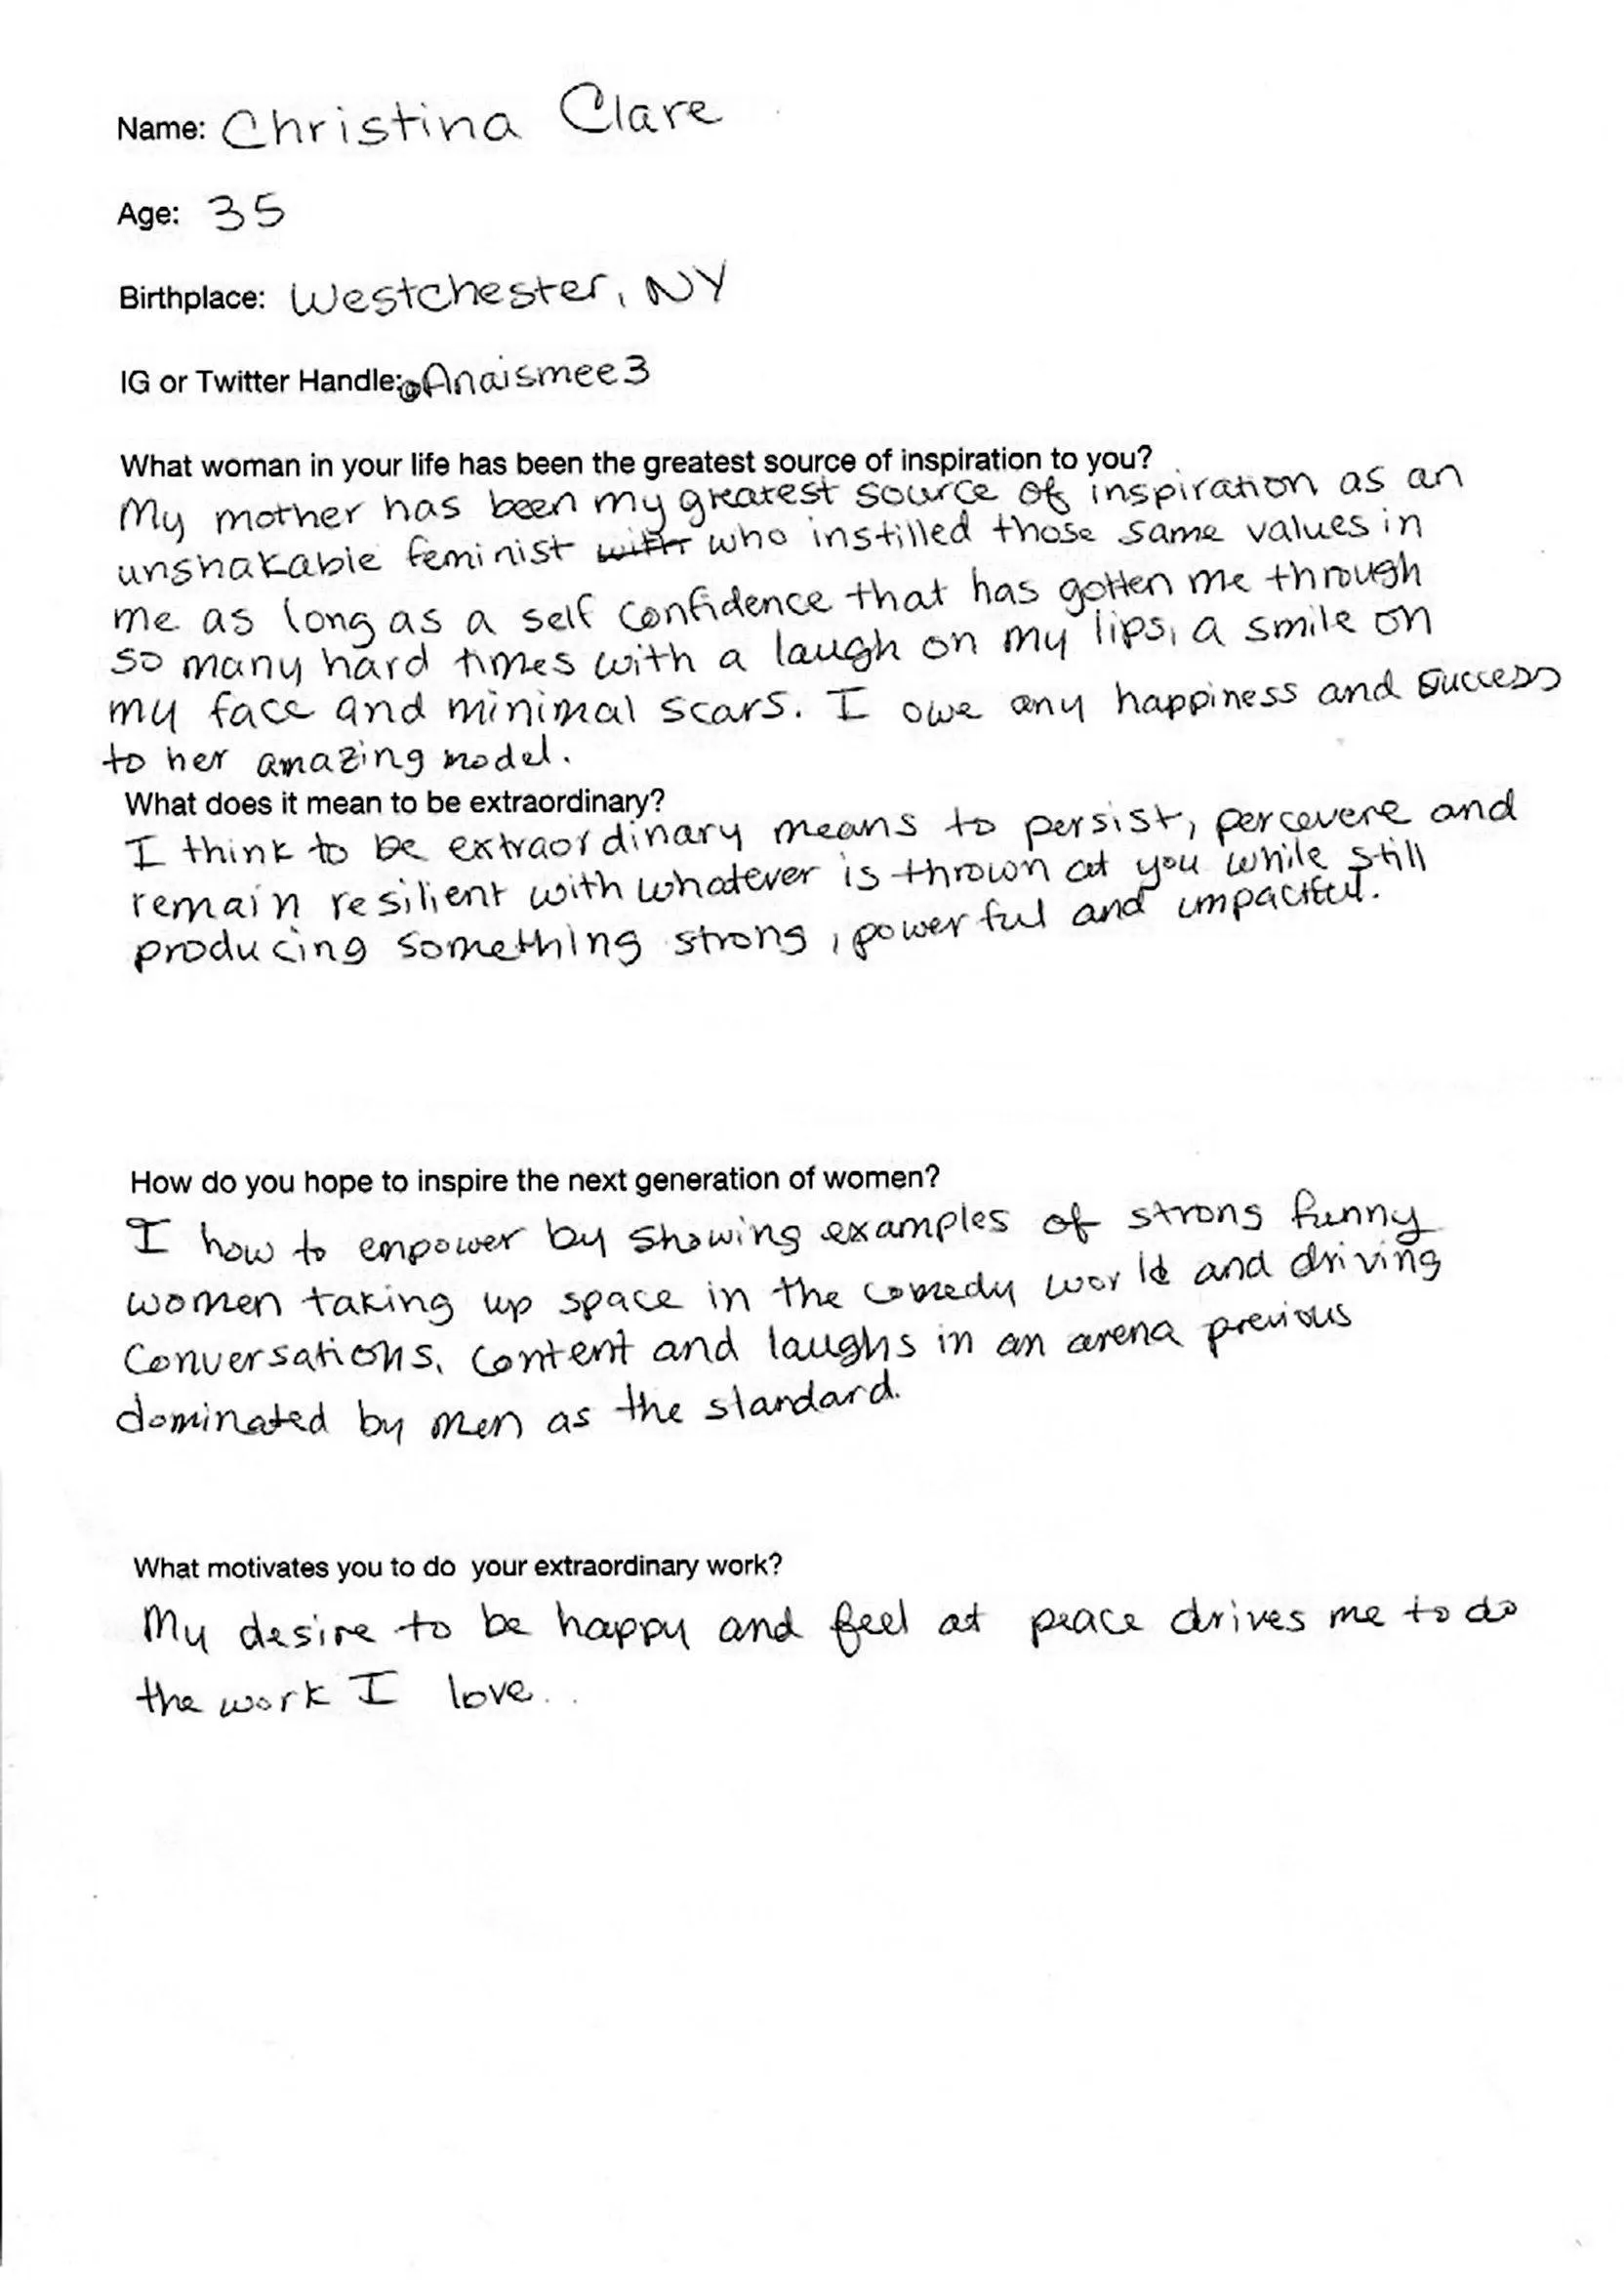 Name: Christina Clare
Age: 35
Birthplace: Westchester, NY
IG or Twitter Handle: @Anaismee3
What woman in your life has been the greatest source of inspiration to you?
My mother has been my greatest source of inspiration as an
unshakable feminist with who instilled those same values in
me as long as a self confidence that has gotten me through
so many hard times with a laugh on my lips, a smile on
my face and minimal scars. I owe any happiness and success
to her amazing model.
What does it mean to be extraordinary?
I think to be extraordinary means to persist, percevere and
remain resilient with whatever is thrown at you while still
producing something strong, powerful and impactful.
How do you hope to inspire the next generation of women?
I how to enpower by showing examples of strong funny
women taking up space in the comedy world and driving
conversations, content and laughs in an arena previous
dominated by men as the standard.
What motivates you to do your extraordinary work?
My desire to be happy and feel at peace drives me to do
the work I love..